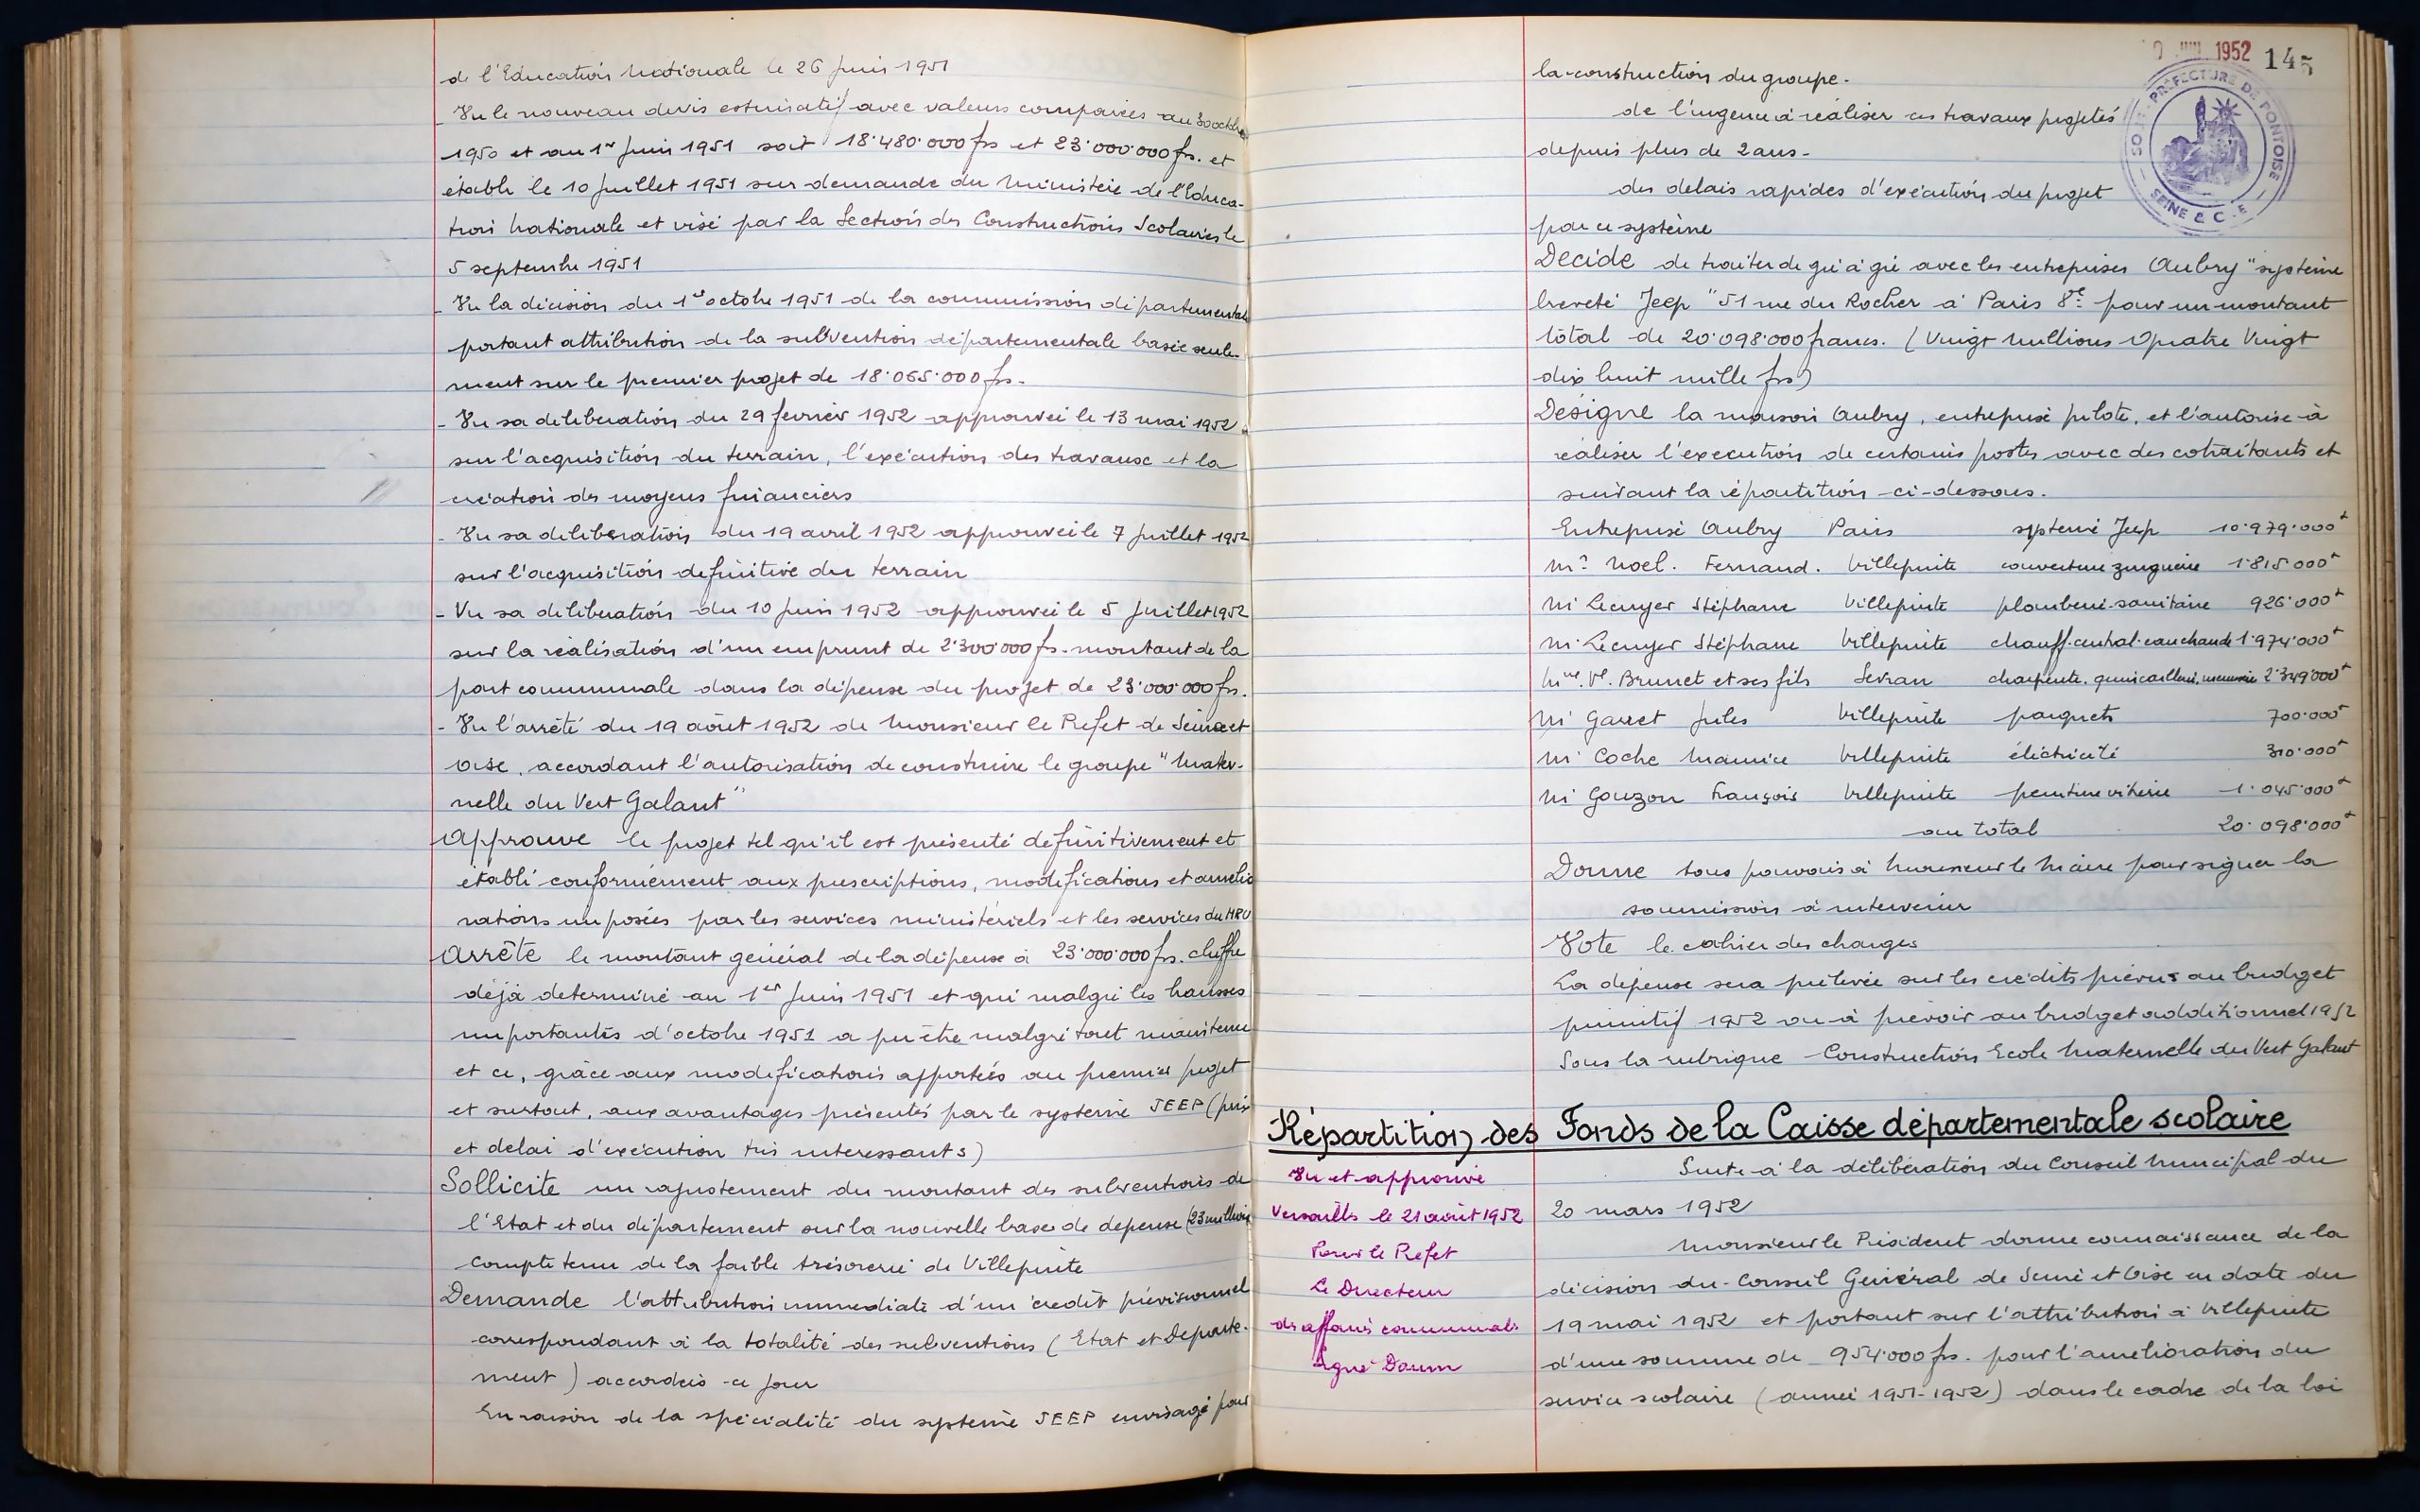 de l'Education Nationale le 26 juin 1951
- Vu le nouveau devis estimatif avec valeurs comparées au 30 octobre
1950 et au 1er juin 1951 soit 18.480.000 frs et 23.000.000 frs. et
établi le 10 juillet 1951 sur demande du Ministère de l'Educa-
tion Nationale et visé par la Section des Constructions Scolaires le
5 septembre 1951
- Vu la décision du 1er octobre 1951 de la commission départementale
portant attribution de la subvention départementale basée seule-
ment sur le premier projet de 18.065.000 frs.
- Vu sa délibération du 29 février 1952 approuvée le 13 mai 1952
sur l'acquisition du terrain, l'exécution des travaux et la
création des moyens financiers
- Vu sa délibération du 19 avril 1952 approuvée le 7 juillet 1952
sur l'acquisition définitive du terrain
- Vu sa délibération du 10 juin 1952 approuvée le 5 juillet 1952
sur la réalisation d'un emprunt de 2.300.000 frs. montant de la
part communale dans la dépense du projet de 23.000.000 frs.
- Vu l'arrêté du 19 août 1952 de Monsieur le Préfet de Seine et
Oise, accordant l'autorisation de construire le groupe "Mater-
nelle du Vert Galant"
Approuve le projet tel qu'il est présenté définitivement et
établi conformément aux prescriptions, modifications et amélio
rations imposées par les services ministériels et les services du MRU
Arrête le montant général de la dépense à 23.000.000 frs. chiffre
déjà déterminé au 1er juin 1951 et qui malgré les hausses
importantes d'octobre 1951 a pu être malgré tout maintenu
et ce, grâce aux modifications apportées au premier projet
et surtout, aux avantages présentés par le système JEEP (prix
et délai d'exécution très intéressants)
Sollicite un rajustement du montant des subventions de
l'Etat et du département sur la nouvelle base de dépense (23 millions
compte tenu de la faible trésorerie de Villepinte
Demande l'attribution immédiate d'un crédit prévisionnel
correspondant à la totalité des subventions (Etat et Départe-
ment) accordées ce jour
En raison de la spécialité du système JEEP envisagé pour
JUIL 1952 145
SOUS-PRÉFECTURE DE PONTOISE
SEINE & OISE
la construction du groupe.
de l'urgence à réaliser ces travaux projetés
depuis plus de 2 ans.
des délais rapides d'exécution du projet
par ce système
Décide de traiter de gré à gré avec les entreprises Aubry "système
breveté Jeep" 51 rue du Rocher à Paris 8e pour un montant
total de 20.098.000 francs. (Vingt millions Quatre Vingt
dix huit mille frs)
Désigne la maison Aubry, entreprise pilote, et l'autorise à
réaliser l'exécution de certains postes avec des cotraitants et
suivant la répartition ci-dessous.
Entreprise Aubry Paris système Jeep 10.979.000
Mr Noel. Fernand. Villepinte couverture zinguerie 1.815.000
Mr Lecuyer Stéphane Villepinte plomberie-sanitaire 926.000
Mr Lecuyer Stéphane Villepinte chauff. central. eau chaude 1.974.000
Mme Ve Brunet et ses fils Sevran charpente. quincaillerie. menuiserie 2.349.000
Mr Garret Jules Villepinte parquets 700.000
Mr Coche Maurice Villepinte éléctricité 310.000
Mr Gouzon François Villepinte peinture vitrerie 1.045.000
au total 20.098.000
Donne tous pouvoirs à Monsieur le Maire pour signer la
soumission à intervenir
Vote le cahier des charges
La dépense sera prélevée sur les crédits prévus au budget
primitif 1952 ou à prévoir au budget additionnel 1952
Sous la rubrique Construction Ecole Maternelle du Vert Galant
Répartition des Fonds de la Caisse départementale scolaire
Vu et approuvé
Versailles le 21 août 1952
Pour le Préfet
Le Directeur
des affaires communales
Signé Daum
Suite à la délibération du Conseil Municipal du
20 mars 1952
Monsieur le Président donne connaissance de la
décision du Conseil Général de Seine et Oise en date du
19 mai 1952 et portant sur l'attribution à Villepinte
d'une somme de 954.000 frs. pour l'amélioration du
service scolaire (année 1951-1952) dans le cadre de la loi